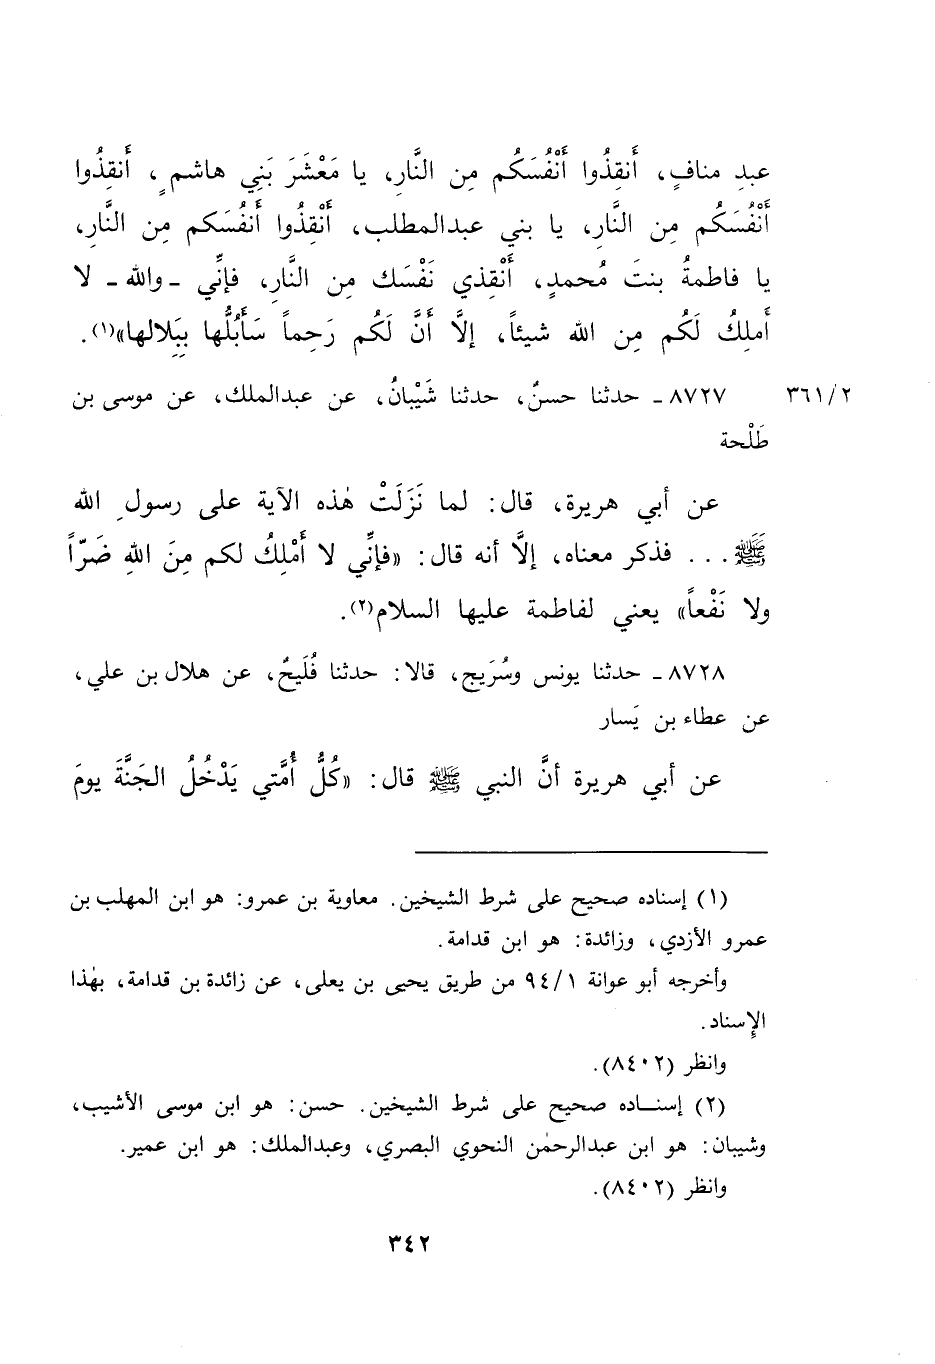 عبدِ منافٍ، أَنقِذُوا أَنْفُسَكُم مِن النَّارِ، يا مَعْشَرَ بَنِي هاشمٍ، أَنقِذُوا
أَنْفُسَكُم مِن النَّارِ، يا بني عبدالمطلب، أَنْقِذُوا أَنفُسَكم مِن النَّارِ،
يا فاطمةُ بنتَ مُحمدٍ، أَنْقِذي نَفْسَك مِن النَّارِ، فإنِّي ـ والله ـ لا
أَملِكُ لَكُم مِن الله شيئاً، إلَّا أَنَّ لَكُم رَحِماً سَأَبُلُّها بِبَلالها»(١).
٣٦١/٢ ٨٧٢٧ ـ حدثنا حسنٌ، حدثنا شَيْبانُ، عن عبدالملك، عن موسى بن
طَلْحة
عن أبي هريرة، قال: لما نَزَلَتْ هٰذه الآية على رسولِ الله
ﷺ... فذكر معناه، إلَّا أنه قال: «فإنِّي لا أَمْلِكُ لكم مِنَ اللهِ ضَرّاً
ولا نَفْعاً» يعني لفاطمة عليها السلام(٢).
٨٧٢٨ ـ حدثنا يونس وسُرَيج، قالا: حدثنا فُلَيحٌ، عن هلال بن علي،
عن عطاء بن يَسار
عن أبي هريرة أنَّ النبي ﷺ قال: «كُلُّ أُمَّتي يَدْخُلُ الجَنَّةَ يومَ
(١) إسناده صحيح على شرط الشيخين. معاوية بن عمرو: هو ابن المهلب بن
عمرو الأزدي، وزائدة: هو ابن قدامة.
وأخرجه أبو عوانة ٩٤/١ من طريق يحيى بن يعلى، عن زائدة بن قدامة، بهٰذا
الإسناد.
وانظر (٨٤٠٢).
(٢) إسنـاده صحيح على شرط الشيخين. حسن: هو ابن موسى الأشيب،
وشيبان: هو ابن عبدالرحمٰن النحوي البصري، وعبدالملك: هو ابن عمير.
وانظر (٨٤٠٢).
٣٤٢